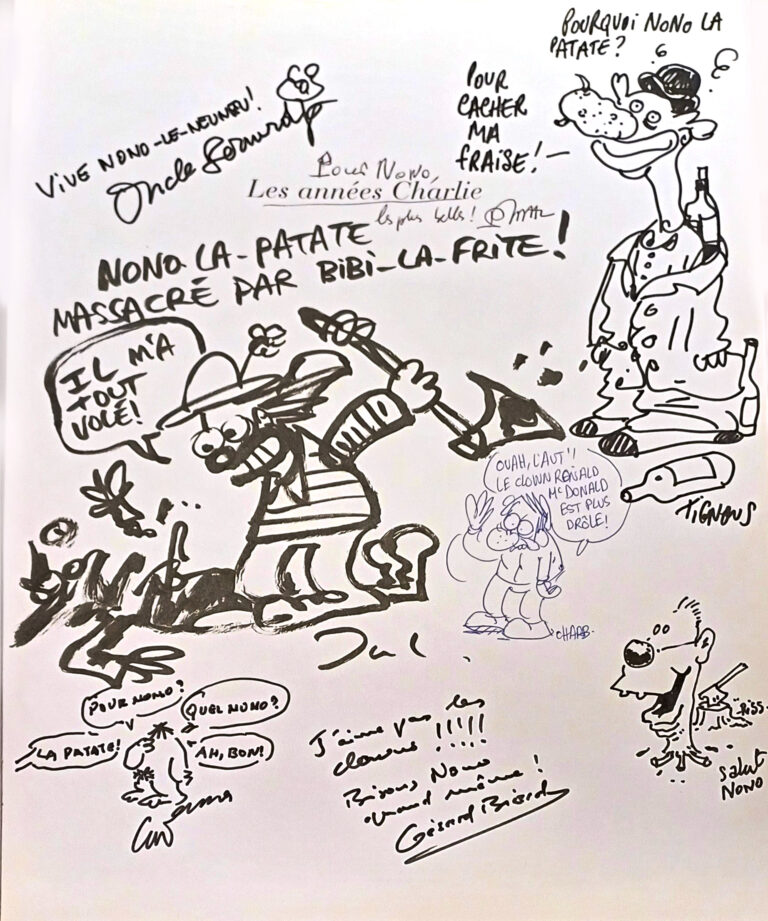 POURQUOI NONO LA
PATATE?
POUR
CACHER
MA
FRAISE!
VIVE NONO-LE-NEUNEU!
Oncle Bernard
Pour Nono,
Les années Charlie
les plus belles!
NONO LA-PATATE
MASSACRÉ PAR BIBI-LA-FRITE!
IL M'A
TOUT
VOLÉ!
OUAH, L'AUT'!
LE CLOWN RONALD
McDONALD
EST PLUS
DRÔLE!
TIGNOUS
CHARB.
Jul
POUR NONO?
QUEL NONO?
LA PATATE!
AH, BON!
Luz
J'aime pas les
clowns !!!!!
Bisous Nono
quand même!
Gérard Biard
Riss
Salut
NONO